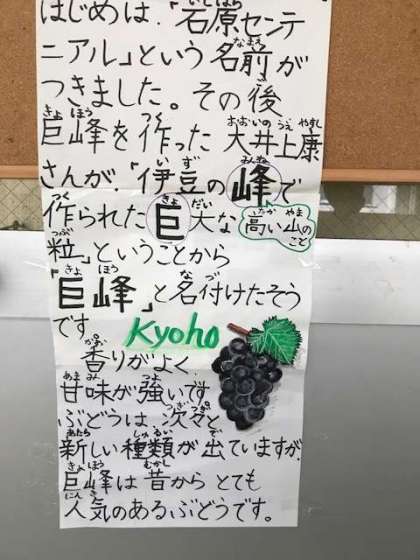 はじめは、「石原センテ
ニアル」という名前が
つきました。その後
巨峰を作った大井上康
さんが、「伊豆の峰で
作られた巨大な
高い山の
こと
粒」ということから
「巨峰」と名付けたそう
です。
Kyoho
香りがよく
甘味が強いです。
ぶどうは、次々と
新しい種類が出ていますが、
巨峰は昔からとても
人気のあるぶどうです。